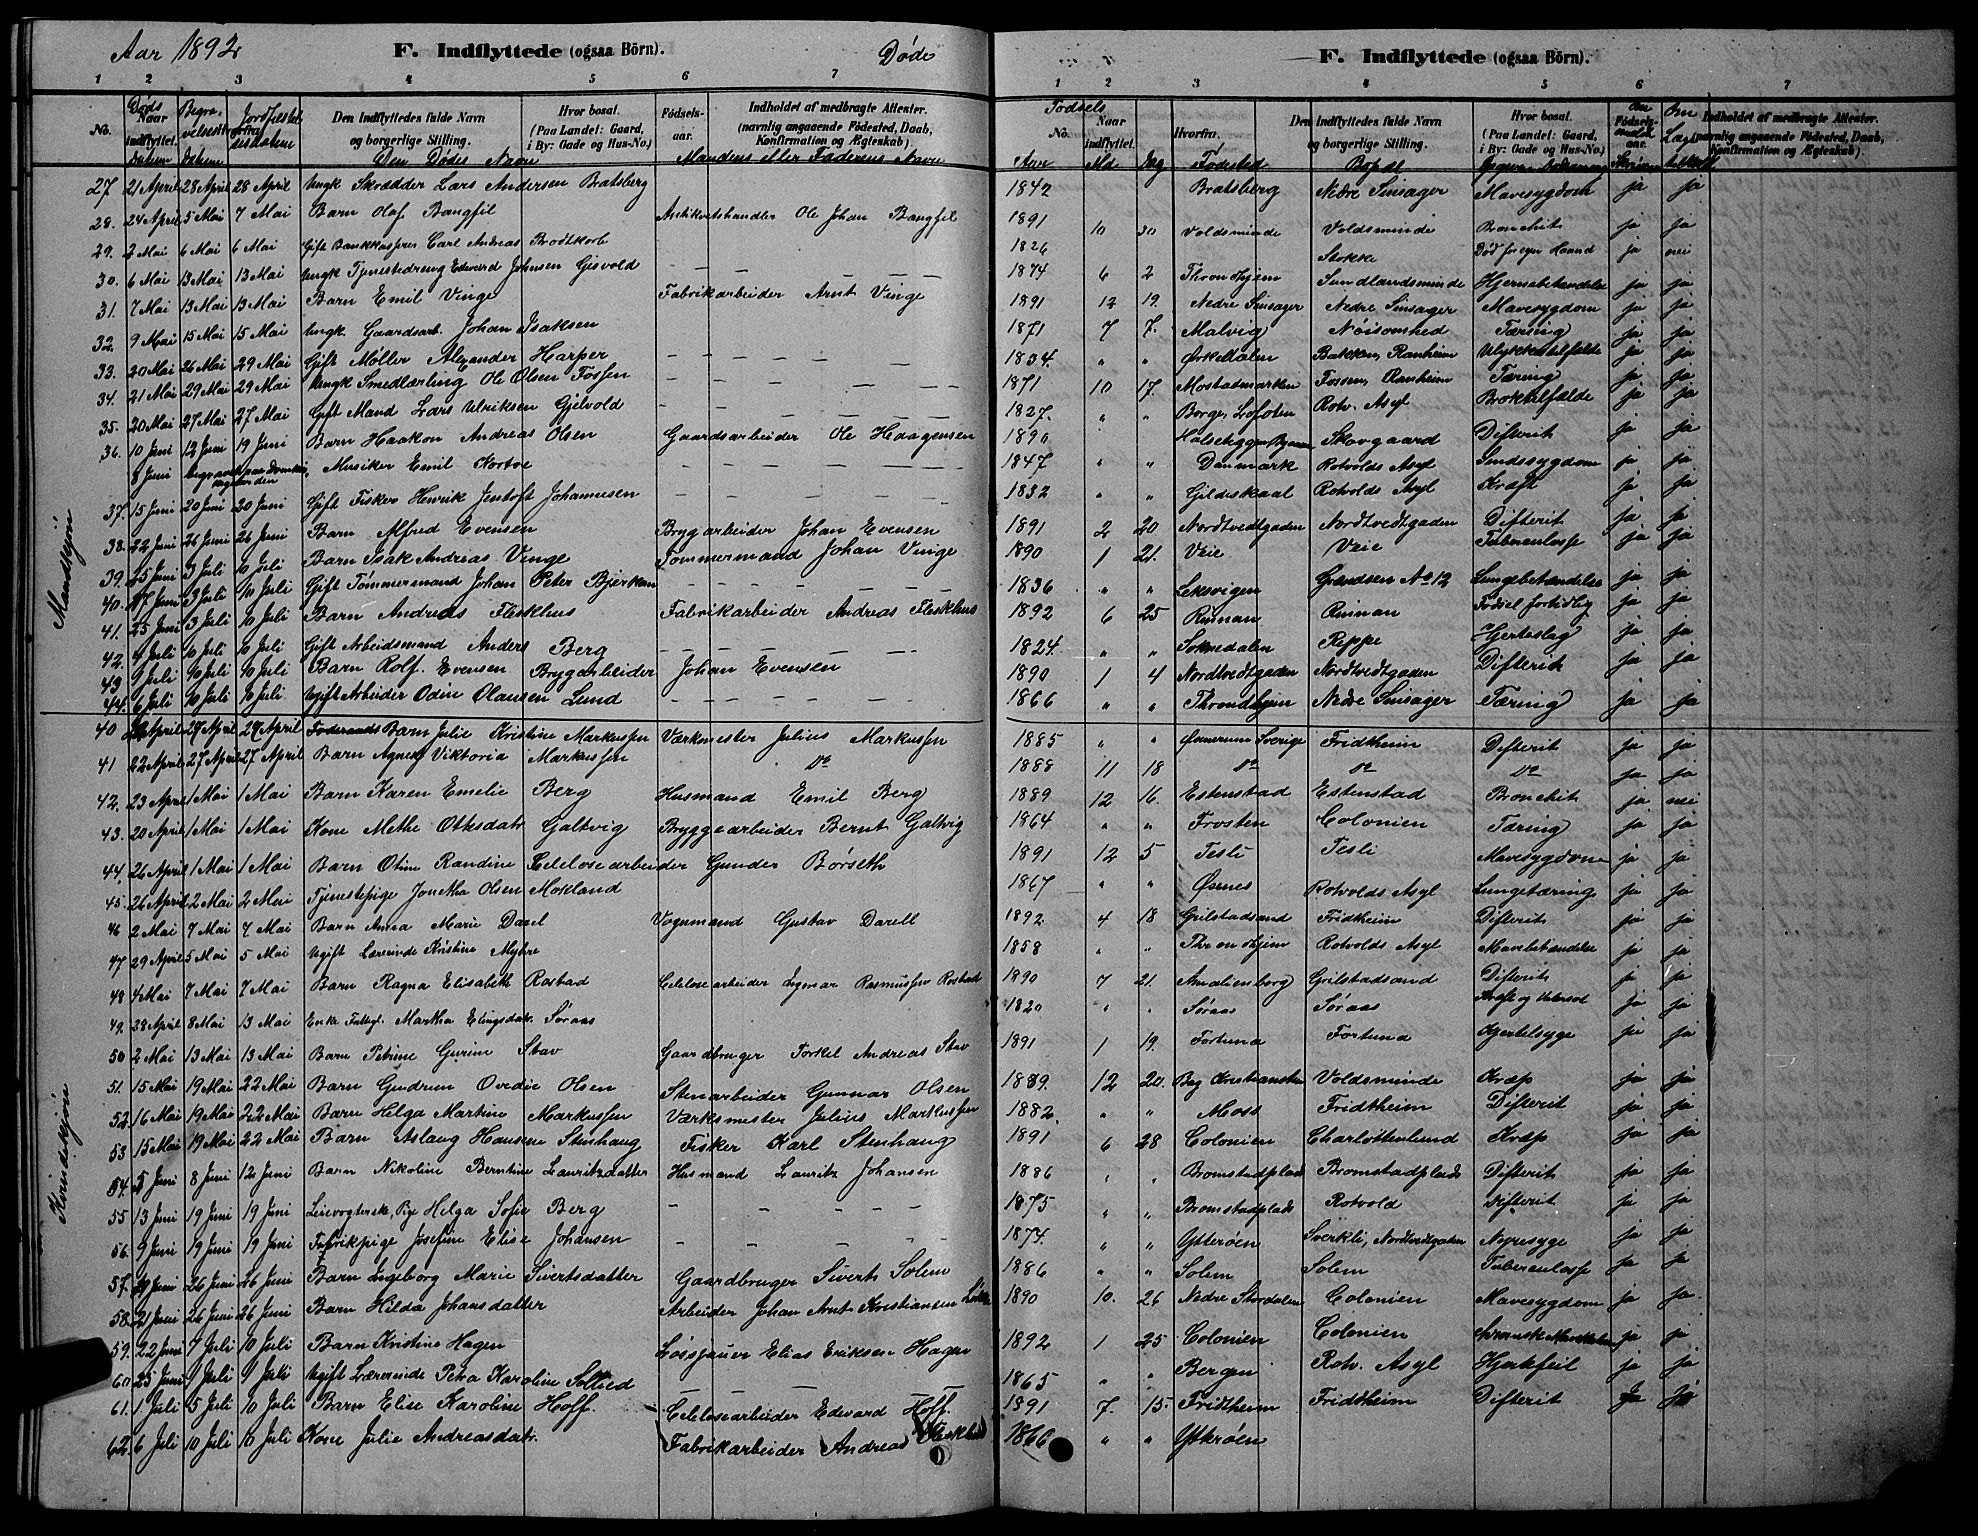 Aar 1892
F. Indflyttede (ogsaa Börn).
Døde
1 2 3 4 5 6 7
No.
Naar indflyttet.
Døds Datum
Begravelses Datum
Jordfæstelsesdatum
Den Indflyttedes fulde Navn og borgerlige Stilling.
Den Dødes Navn
Hvor bosat. (Paa Landet: Gaard, i By: Gade og Hus-No.)
Födselsaar.
Indholdet af medbragte Attester. (navnlig angaaende Födested, Daab, Konfirmation og Ægteskab)
Mandens eller Faderens Navn
Mandkjøn
27 21 April 28 April 28 April Ungk Skrædder Lars Andersen Bratsberg
28. 24 April 5 Mai 7 Mai Barn Olaf Bangfil Antikvitshandler Ole Johan Bangfil
29. 2 Mai 6 Mai 6 Mai Gift Bankkasserer Carl Andreas Brodtkorb
30. 6 Mai 13 Mai 13 Mai Ungk Tjenestedreng Edvard Johnsen Gisvold — — — — —
31. 7 Mai 13 Mai 13 Mai Barn Emil Vinge Fabrikarbeider Arnt Vinge
32. 9 Mai 15 Mai 15 Mai Ungk Gaardsarb. Johan Isaksen
33. 20 Mai 26 Mai 29 Mai Gift Møller Alexander Harper — — — — —
34. 21 Mai 29 Mai 29 Mai Ungk Smedlærling Ole Olsen Fossen — — — — —
35. 20 Mai 27 Mai 27 Mai Gift Mand Lars Ulriksen Gjelvold — — — — —
36. 10 Juni 12 Juni 19 Juni Barn Haakon Andreas Olsen Gaardsarbeider Ole Haagensen
8 Juni Musiker Emil Kortoe — — — — —
37. 15 Juni 20 Juni 20 Juni Gift Fisker Henrik Jentoft Johannesen — — — — —
38. 22 Juni 26 Juni 26 Juni Barn Alfred Evensen Brygarbeider Johan Evensen
39. 25 Juni 3 Juli Juli Barn Isak Andreas Vinge Tømmermand Johan Vinge
40. 27 Juni 3 Juli 10 Juli Gift Tømmermand Johan Peter Bjerkan — — — — —
41. 25 Juni 3 Juli 10 Juli Barn Andreas Fleskhus Fabrikarbeider Andreas Fleskhus
42. 4 Juli 10 Juli 10 Juli Gift Arbeidsmand Anders Berg — — — — —
43 9 Juli 10 Juli 10 Juli Barn Rolf Evensen Brygarbeider Johan Evensen
44. 6 Juli 10 Juli 10 Juli Ugift Arbeider Odin Olausen Lund — — — — —
Kvindekjøn
40 April 27 April 27 April Barn Julie Kristine Markussen Værkmester Julius Markussen
41 22 April 27 April 27 April Barn Agnes Viktoria Markussen Do
42. 23 April 1 Mai 1 Mai Barn Karen Emelie Berg Husmand Emil Berg
43. 20 April 1 Mai 1 Mai Kone Methe Othsdatr Galtvig Bryggearbeider Bernt Galtvig
44. 26 April 1 Mai 1 Mai Barn Otine Randine Celelosearbeider Gunder Børseth
45. 26 April 2 Mai 2 Mai Tjenestepige Jonetha Olsen Mokland
46 2 Mai 7 Mai 7 Mai Barn Anna Marie Darel Vognmand Gustav Darell
47 29 April 5 Mai 5 Mai Ugift Lærerinde Kristine Myhre
48 4 Mai 7 Mai 7 Mai Barn Ragna Elisabeth Rostad Celelosearbeider Ingvar Rasmussen Rostad
49. 28 April 8 Mai 13 Mai Enke Fattigl. Martha Elingsdatr Søraas
50 2 Mai 13 Mai 13 Mai Barn Petrine Gurine Stav Gaardbruger Torkel Andreas Stav
51. 15 Mai 19 Mai 22 Mai Barn Gudrun Ovedie Olsen Stenarbeider Gunnar Olsen
52. 16 Mai 19 Mai 22 Mai Barn Helga Martine Markussen Værksmester Julius Markussen
53 15 Mai 19 Mai 22 Mai Barn Aslaug Hansine Stenhaug Fisker Karl Stenhaug
54. 5 Juni 8 Juni 12 Juni Barn Nikoline Berntine Lauritzdatter Husmand Lauritz Johansen
55 13 Juni 19 Juni 19 Juni Helga Sofie Berg — — — — —
56. 9 Juni 19 Juni 19 Juni Fabrikpige Josefine Elise Johansen — — — — —
57. 20 Juni 26 Juni 26 Juni Barn Ingeborg Marie Sivertsdatter Gaardbruger Sivert Solem
58. 21 Juni 26 Juni 26 Juni Barn Hilda Johansdatter Arbeider Johan Arnt Kristiansen
59. 22 Juni 7 Juli 10 Juli Barn Kristine Hagen Løssjauer Elias Eriksen Hagen
60 25 Juni 1 Juli 9 Juli Ugift Lærerinde Petra Karoline Sollied — — —
61. 1 Juli 5 Juli 10 Juli Barn Elise Karoline Hoff. Celelosearbeider Edvard Hoff.
62. 6 Juli 10 Juli 10 Juli Kone Julie Andreasdatr. Fabrikarbeider Andreas Fleskhus
F. Indflyttede (ogsaa Börn).
1 2 3 4 5 6 7
Fødsels
No.
Naar indflyttet.
Hvorfra.
Den Indflyttedes fulde Navn og borgerlige Stilling.
Hvor bosat. (Paa Landet: Gaard, i By: Gade og Hus-No.)
Födselsaar.
Indholdet af medbragte Attester. (navnlig angaaende Födested, Daab, Konfirmation og Ægteskab).
Aar Md Dag Fødested Bopæl
1842 Bratsberg Nedre Sinsager Mavesygdom ja ja
1891 10 30 Voldsminde Voldsminde Bronchit ja ja
1826 Stokke Død for egen Haand ja nei
1874 6 2 Thronhjem Sundlandsminde Hjernebetændelse ja ja
1891 12 19. Nedre Sinsager Nedre Sinsager Mavesygdom ja ja
1871 7 7. Malvig Nøisomhed Tæring ja ja
1834. " " Ørkedalen Bakken, Ranheim Ulykkestilfælde ja ja
1871 10 17. Mostadmarken Fossen, Ranheim Tæring ja ja
1827. " " Borge, Lofoten Rotv. Asyl Broktilfælde ja ja
1890 Skovgaard Difterit ja ja
1847 " " Danmark Rotvolds Asyl Sindssygdom ja ja
1832 " " Gildeskaal Rotvolds Asyl Kræft ja ja
1891 2 20 Nordtvedtgaden Nordtvedtgaden Difterit ja ja
1890 1 21. Veie Veie Tuberculose ja ja
1836 " " Leksvigen Grændsen No 12 Lungebetændelse ja ja
1892 6 25 Rønnan Rønnan Fødsel fortidlig ja ja
1824. " " Soknedalen Reppe Hjerteslag ja ja
1890 1 4 Nordtvedtgaden Nordtvedtgaden Difterit ja ja
1866 " " Throndhjem Nedre Sinsager Tæring ja ja
1885 " " Sverige Fridtheim Difterit ja ja
1888 11 18 Do Do Do ja ja
1889 12 16. Estenstad Estenstad Bronchit ja nei
1864 " " Frosten Colonien Tæring ja ja
1891 12 5 Tesli Tesli Mavesygdom ja ja
1867 " " Øsnes Rotvolds Asyl Lungetæring ja ja
1892 4 18 Grilstadsand Fridtheim Difterit ja ja
1858 " " Thronhjem Rotvolds Asyl Mavebetændelse ja ja
1890 7 21. Amalienborg Grilstadsand Difterit ja ja
1820 " " Søraas Søraas ja ja
1891 1 19. Fortuna Fortuna Hjertelsyge ja ja
1889. 12 20. Voldsminde Kræp ja ja
1882 " " Moss Fridtheim Difterit ja ja
1891 6 28 Colonien Charlottenlund Kræp ja ja
1886 " " Bromstadplads Bromstadplads Difterit ja ja
1875 " " Bromstadplads Rotvold Difterit ja ja
1874. " " Ytterøen Sverkli, Nordtvedtgaden Nyresyge ja ja
1886 " " Solem Solem Tuberculose ja ja
1890 10. 26 Nedre Stordalen Colonien Mavesygdom ja ja
1892 1 25 Colonien Colonien ja ja
1865 " " Bergen Rotv. Asyl Hjertefeil ja ja
1891 7. 15. Fridtheim Fridtheim Difterit Ja Ja
1866 " " Ytterøen